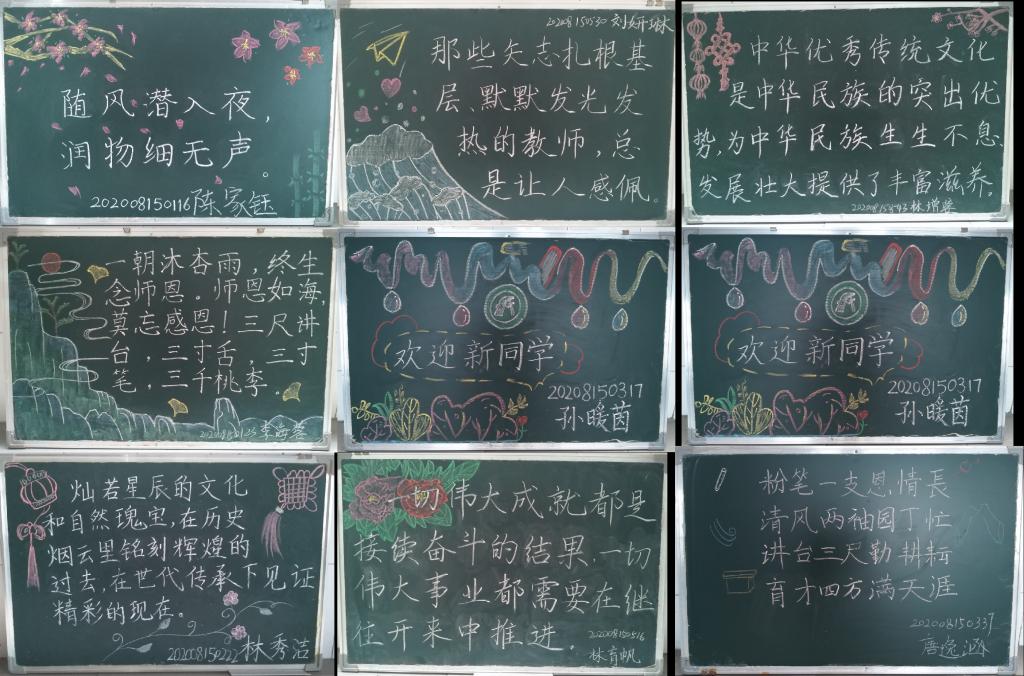 随风潜入夜,
润物细无声。
202008150116陈家钰
202008150530 刘妍琳
那些矢志扎根基
层、默默发光发
热的教师,总
是让人感佩。
中华优秀传统文化
是中华民族的突出优
势,为中华民族生生不息、
发展壮大提供了丰富滋养。
一朝沐杏雨,终生
念师恩。师恩如海,
莫忘感恩!三尺讲
台,三寸舌,三寸
笔,三千桃李。
欢迎新同学
202008150317
孙暖茵
欢迎新同学
202008150317
孙暖茵
灿若星辰的文化
和自然瑰宝,在历史
烟云里铭刻辉煌的
过去,在世代传承下见证
精彩的现在。
202008150222林秀洁
一切伟大成就都是
接续奋斗的结果,一切
伟大事业都需要在继
往开来中推进。
202008150516
林育帆
粉笔一支恩情長
清风两袖园丁忙
讲台三尺勤耕耘
育才四方满天涯
202008150337
唐逸涵